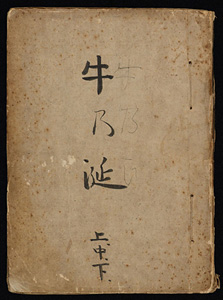 牛乃涎
上中下